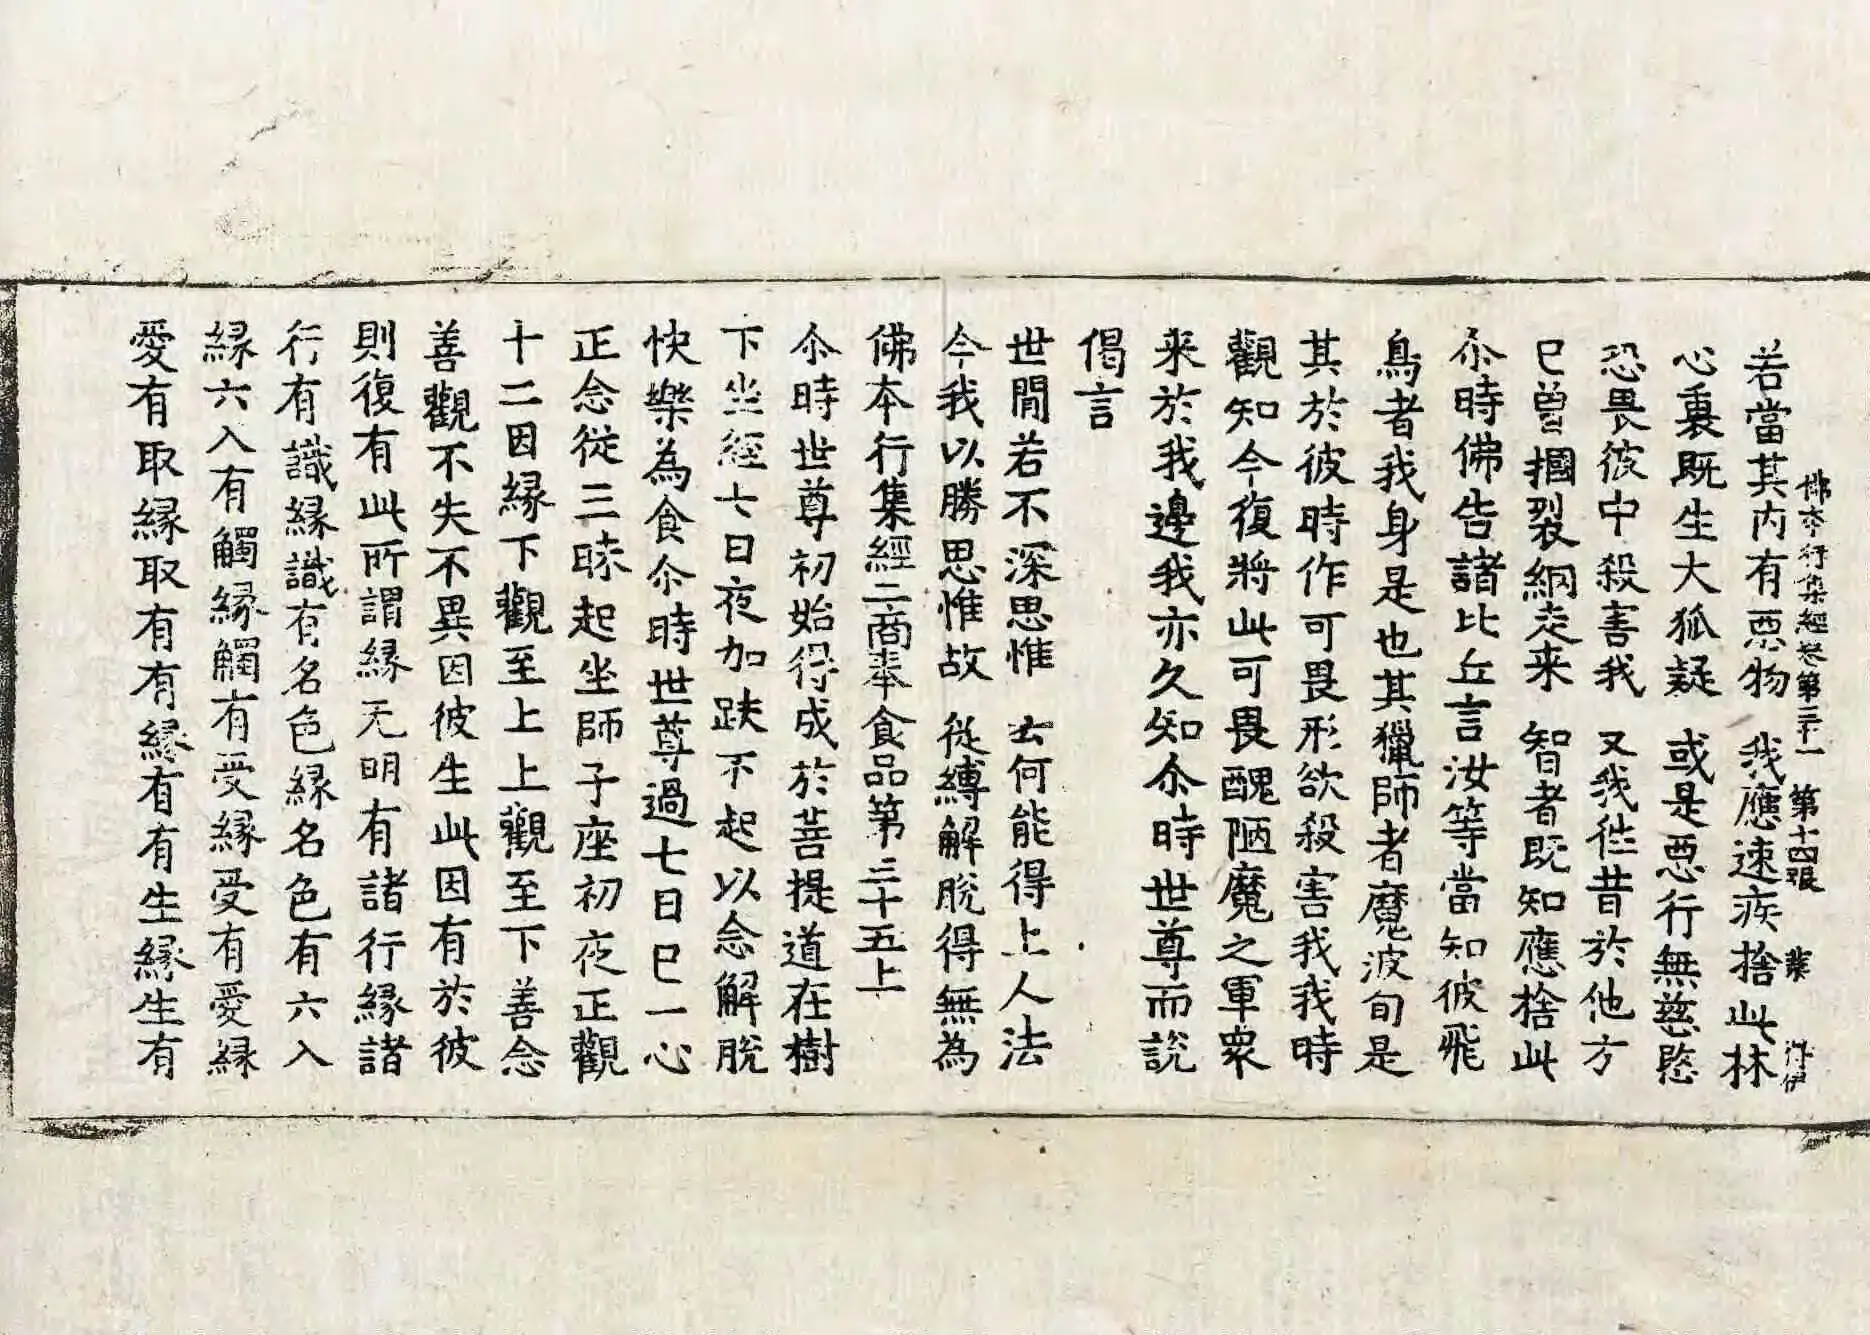 佛本行集經卷第三十一 第十四張 業
若當其內有惡物 我應速疾捨此林
心裏既生大狐疑 或是惡行無慈愍
恐畏彼中殺害我 又我往昔於他方
已曾摑裂網走来 智者既知應捨此
尒時佛告諸比丘言汝等當知彼飛
鳥者我身是也其獵師者魔波旬是
其於彼時作可畏形欲殺害我我時
觀知今復將此可畏醜陋魔之軍衆
来於我邊我亦久知尒時世尊而說
偈言
世間若不深思惟 云何能得上人法
今我以勝思惟故 從縛解脫得無為
佛本行集經二商奉食品第三十五上
尒時世尊初始得成於菩提道在樹
下坐經七日夜加趺不起以念解脫
快樂為食尒時世尊過七日已一心
正念從三昧起坐師子座初夜正觀
十二因緣下觀至上上觀至下善念
善觀不失不異因彼生此因有於彼
則復有此所謂緣无明有諸行緣諸
行有識緣識有名色緣名色有六入
緣六入有觸緣觸有受緣受有愛緣
愛有取緣取有有緣有有生緣生有